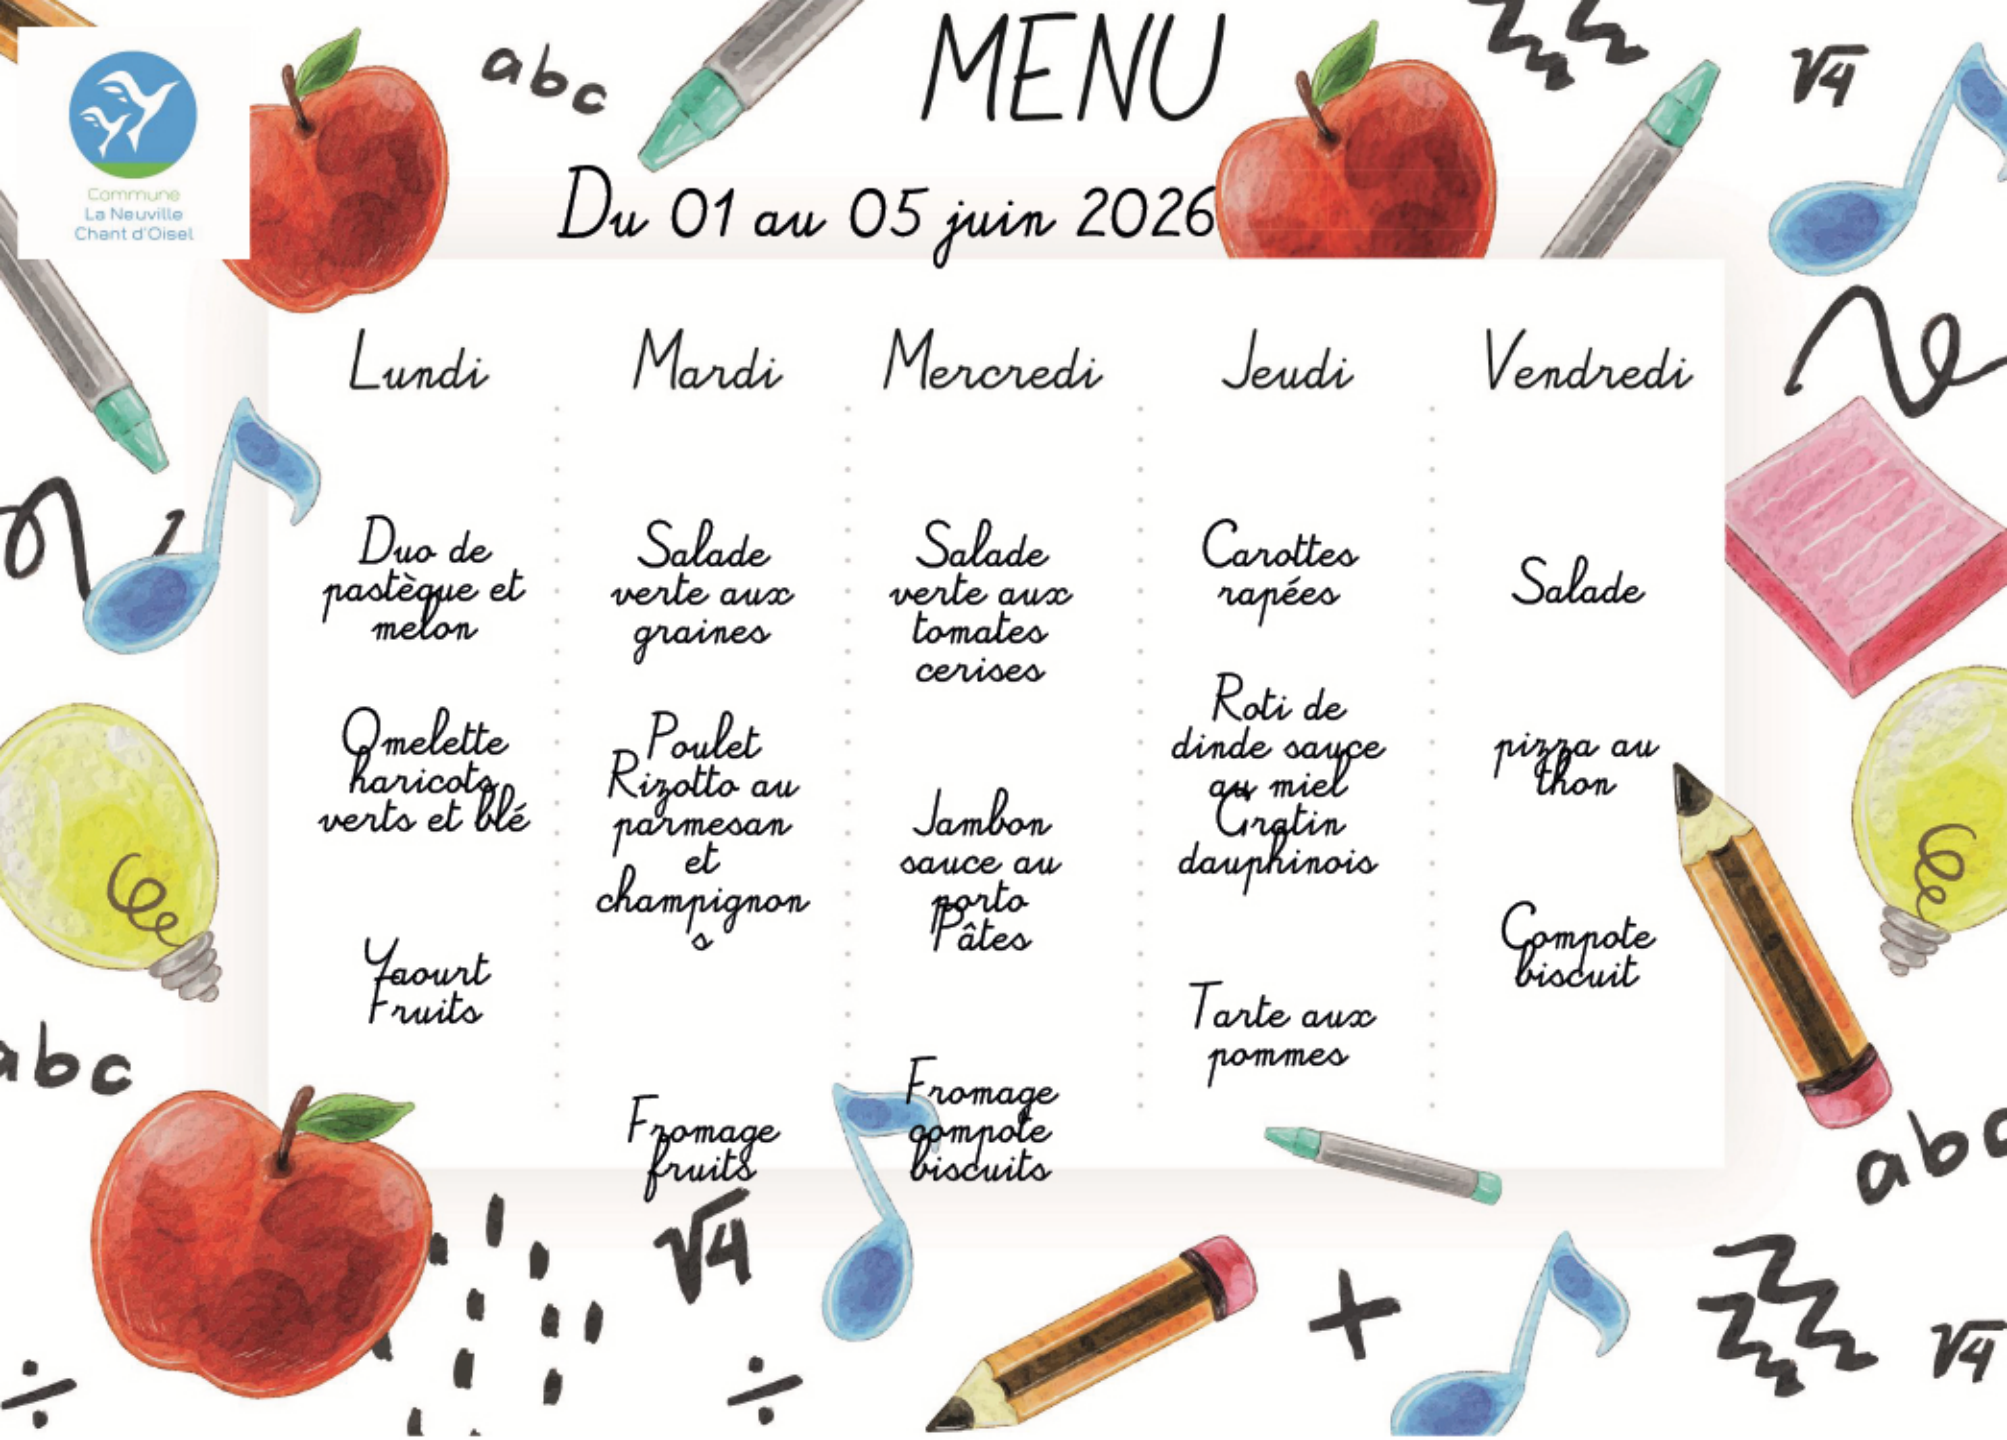 Commune
La Neuville
Chant d'Oisel
abc
MENU
√4
Du 01 au 05 juin 2026
Lundi
Duo de
pastèque et
melon
Omelette
haricots
verts et blé
Yaourt
Fruits
Mardi
Salade
verte aux
graines
Poulet
Rizotto au
parmesan
et
champignon
s
Fromage
fruits
Mercredi
Salade
verte aux
tomates
cerises
Jambon
sauce au
porto
Pâtes
Fromage
compote
biscuits
Jeudi
Carottes
rapées
Roti de
dinde sauce
au miel
Gratin
dauphinois
Tarte aux
pommes
Vendredi
Salade
pizza au
thon
Compote
biscuit
abc
abc
√4
÷
÷
+
√4